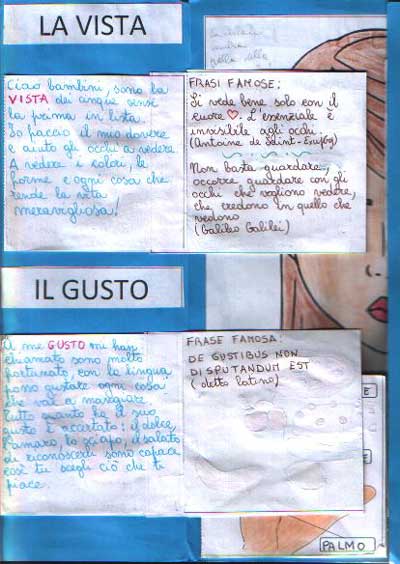 LA VISTA
Ciao bambini, sono la
VISTA dei cinque sensi
la prima in lista.
Io faccio il mio dovere
e aiuto gli occhi a vedere.
A vedere i colori, le
forme e ogni cosa che
rende la vita
meravigliosa!
FRASI FAMOSE:
Si vede bene solo con il
cuore. L'essenziale è
invisibile agli occhi.
(Antoine de Saint-Exupéry)
Non basta guardare,
occorre guardare con gli
occhi che vogliono vedere,
che credono in quello che
vedono
(Galileo Galilei)
IL GUSTO
A me GUSTO mi han
chiamato sono molto
fortunato, con la lingua
posso gustare ogni cosa
che vai a mangiare
Tutto quanto ha il suo
gusto è accertato: il dolce,
l'amaro, lo sciapo, il salato
di riconoscerli sono capace
così tu scegli ciò che ti
piace.
FRASE FAMOSA:
DE GUSTIBUS NON
DISPUTANDUM EST
(detto latino)
PALMO